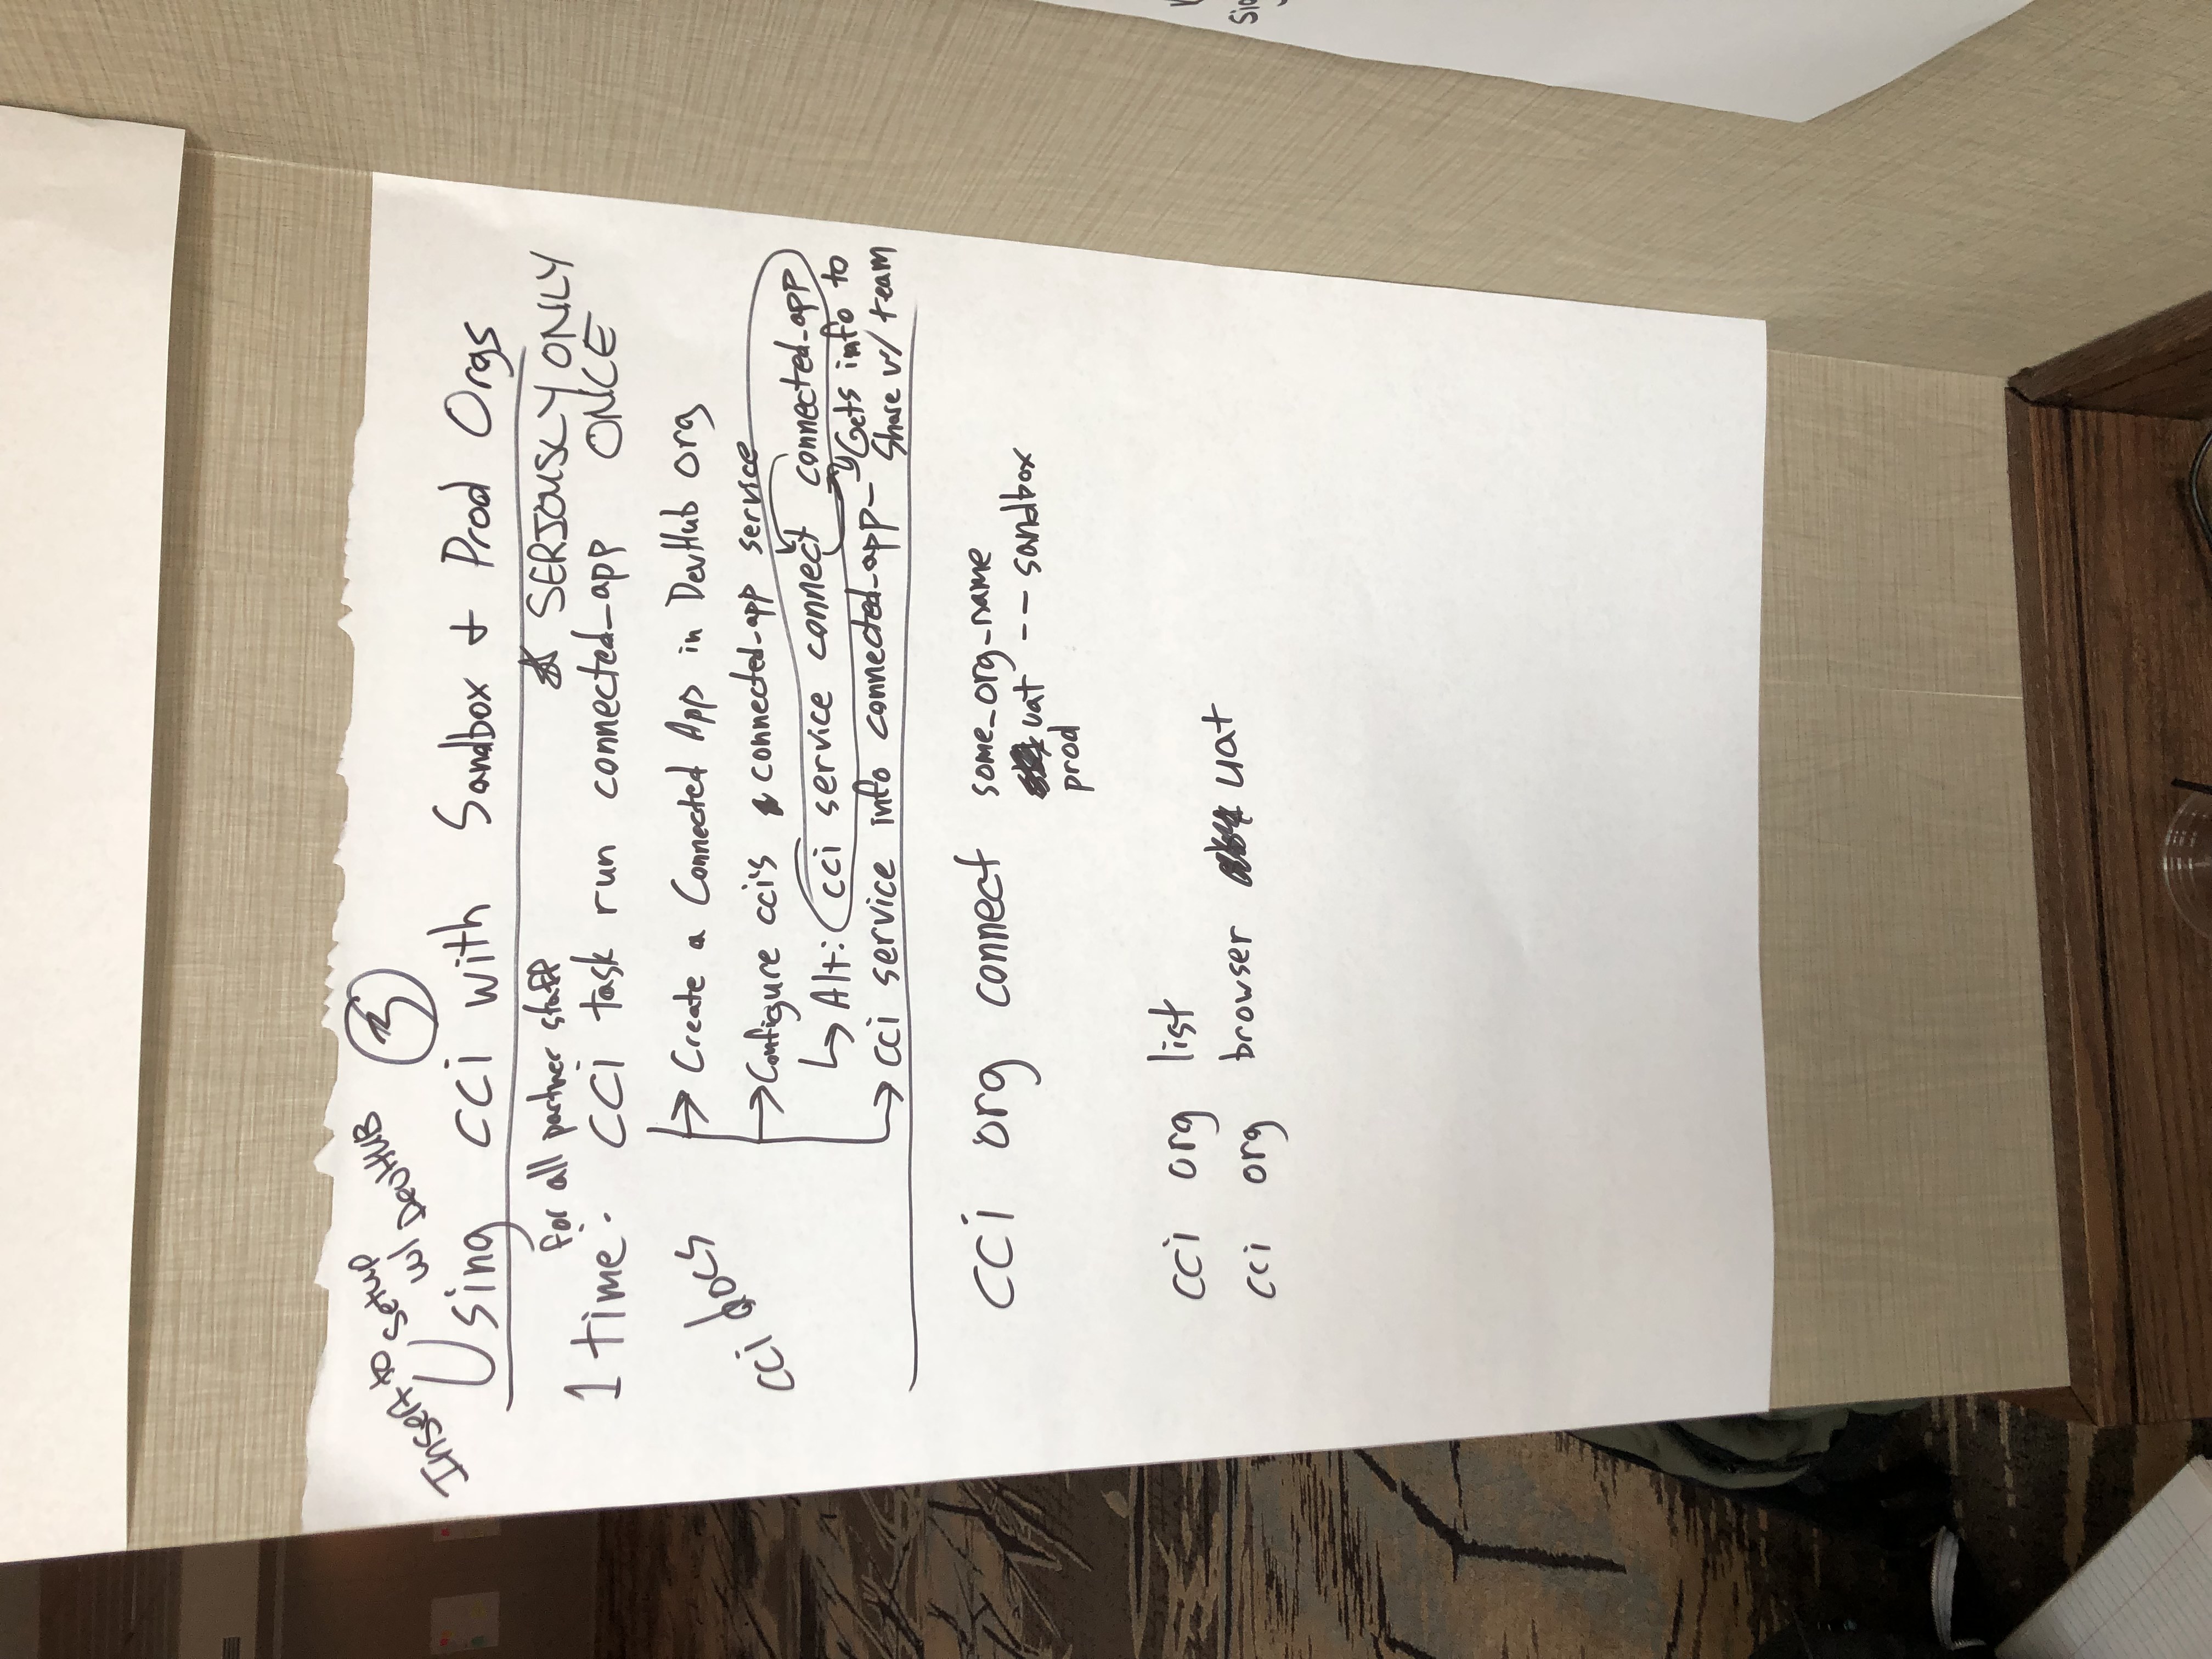 Insert to
setup
w/ DevHUB
Using cci with Sandbox + Prod Orgs
for all partner staff
SERIOUSLY ONLY
ONCE
1 time: cci task run connected_app
cci docs
→ Create a Connected App in DevHub org
→ Configure cci's connected_app service
↳ Alt: cci service connect connected_app
→ cci service info connected_app -
Gets info to
Share w/ team
cci org connect some_org_name
uat -- sandbox
prod
cci org list
cci org browser uat